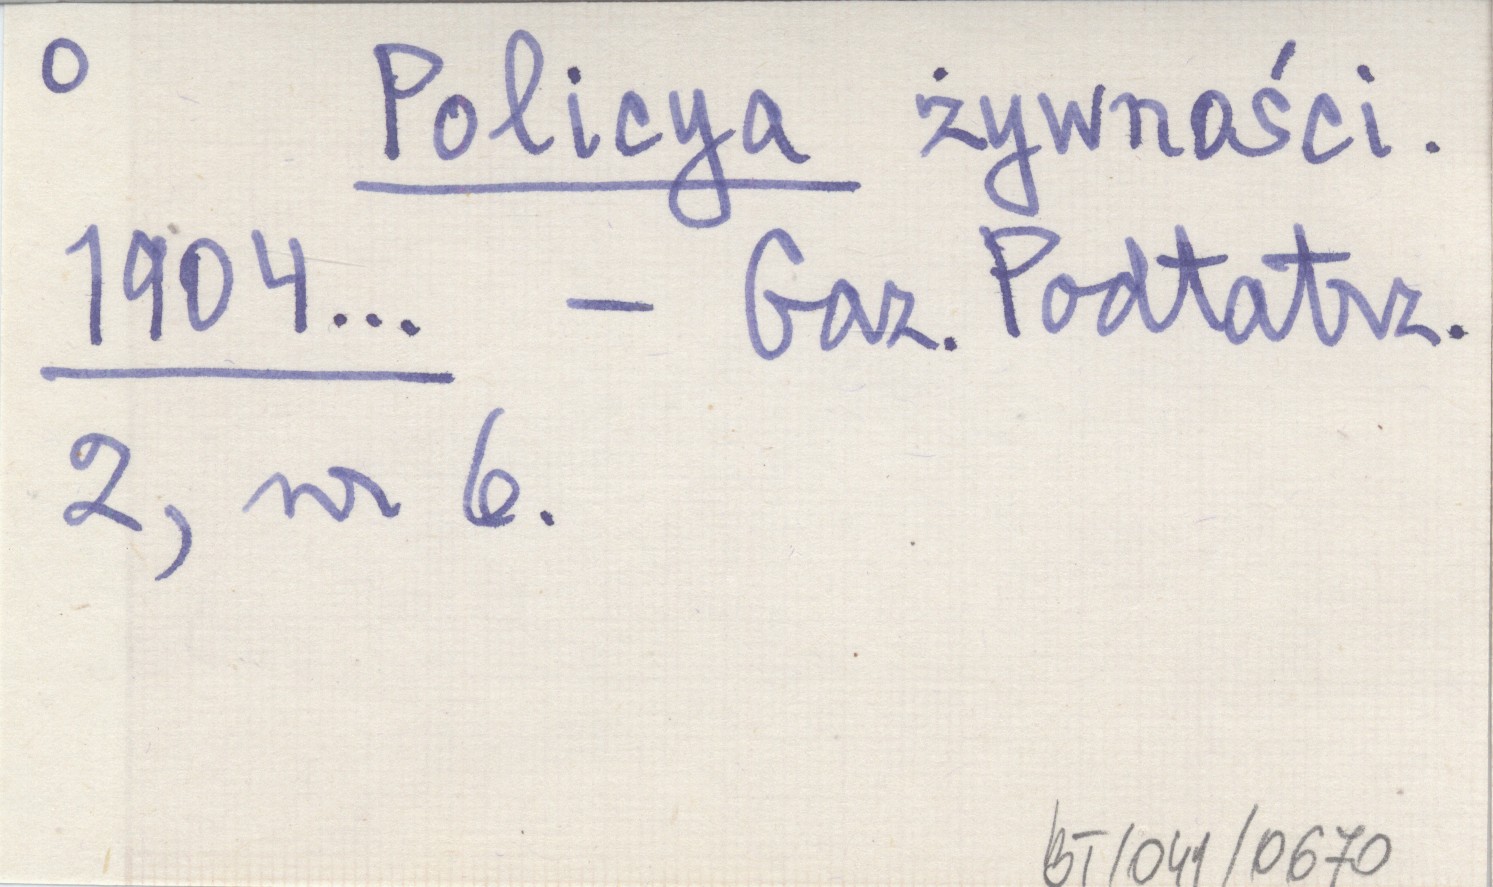 o Policya żywności.
1904... - Gaz. Podtatrz.
2, nr 6.
BT/041/0670